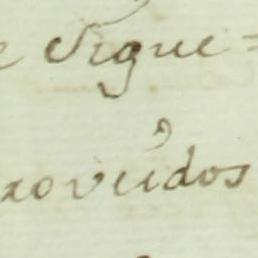 e Sigue=
xoveidos